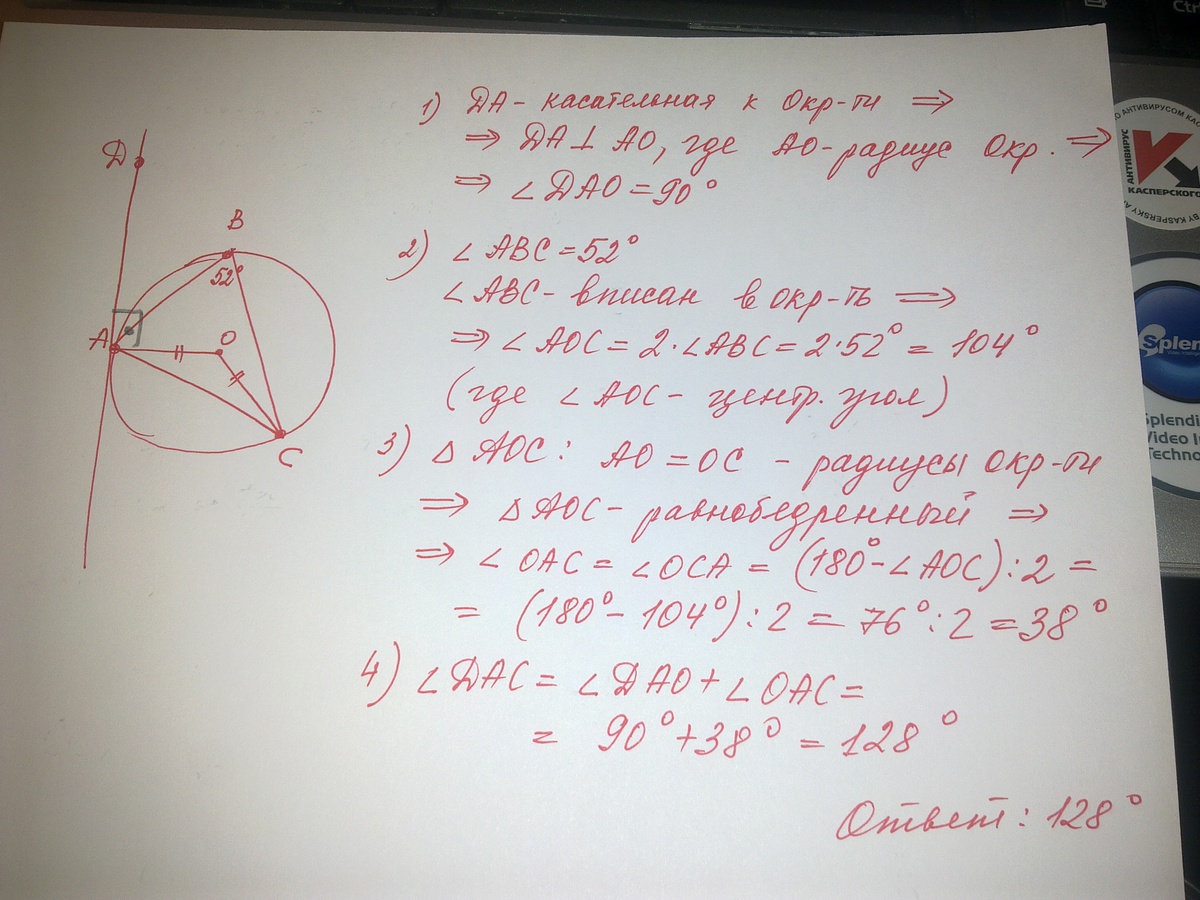 1) DA - касательная к Окр-ти ⇒
⇒ DA ⊥ AO, где AO - радиус Окр. ⇒
⇒ ∠DAO = 90°
2) ∠ABC = 52°
∠ABC - вписан в окр-ть ⇒
⇒ ∠AOC = 2·∠ABC = 2·52° = 104°
(где ∠AOC - центр. угол)
3) △ AOC: AO = OC - радиусы Окр-ти
⇒ △AOC - равнобедренный ⇒
⇒ ∠OAC = ∠OCA = (180° - ∠AOC):2 =
= (180° - 104°):2 = 76°:2 = 38°
4) ∠DAC = ∠DAO + ∠OAC =
= 90° + 38° = 128°
Ответ: 128°
D
B
52°
A
O
C
Ctr
АНТИВИРУС
КАСПЕРСКОГО
BY KASPERSKY
Splen
Splendi
Video I
Techno